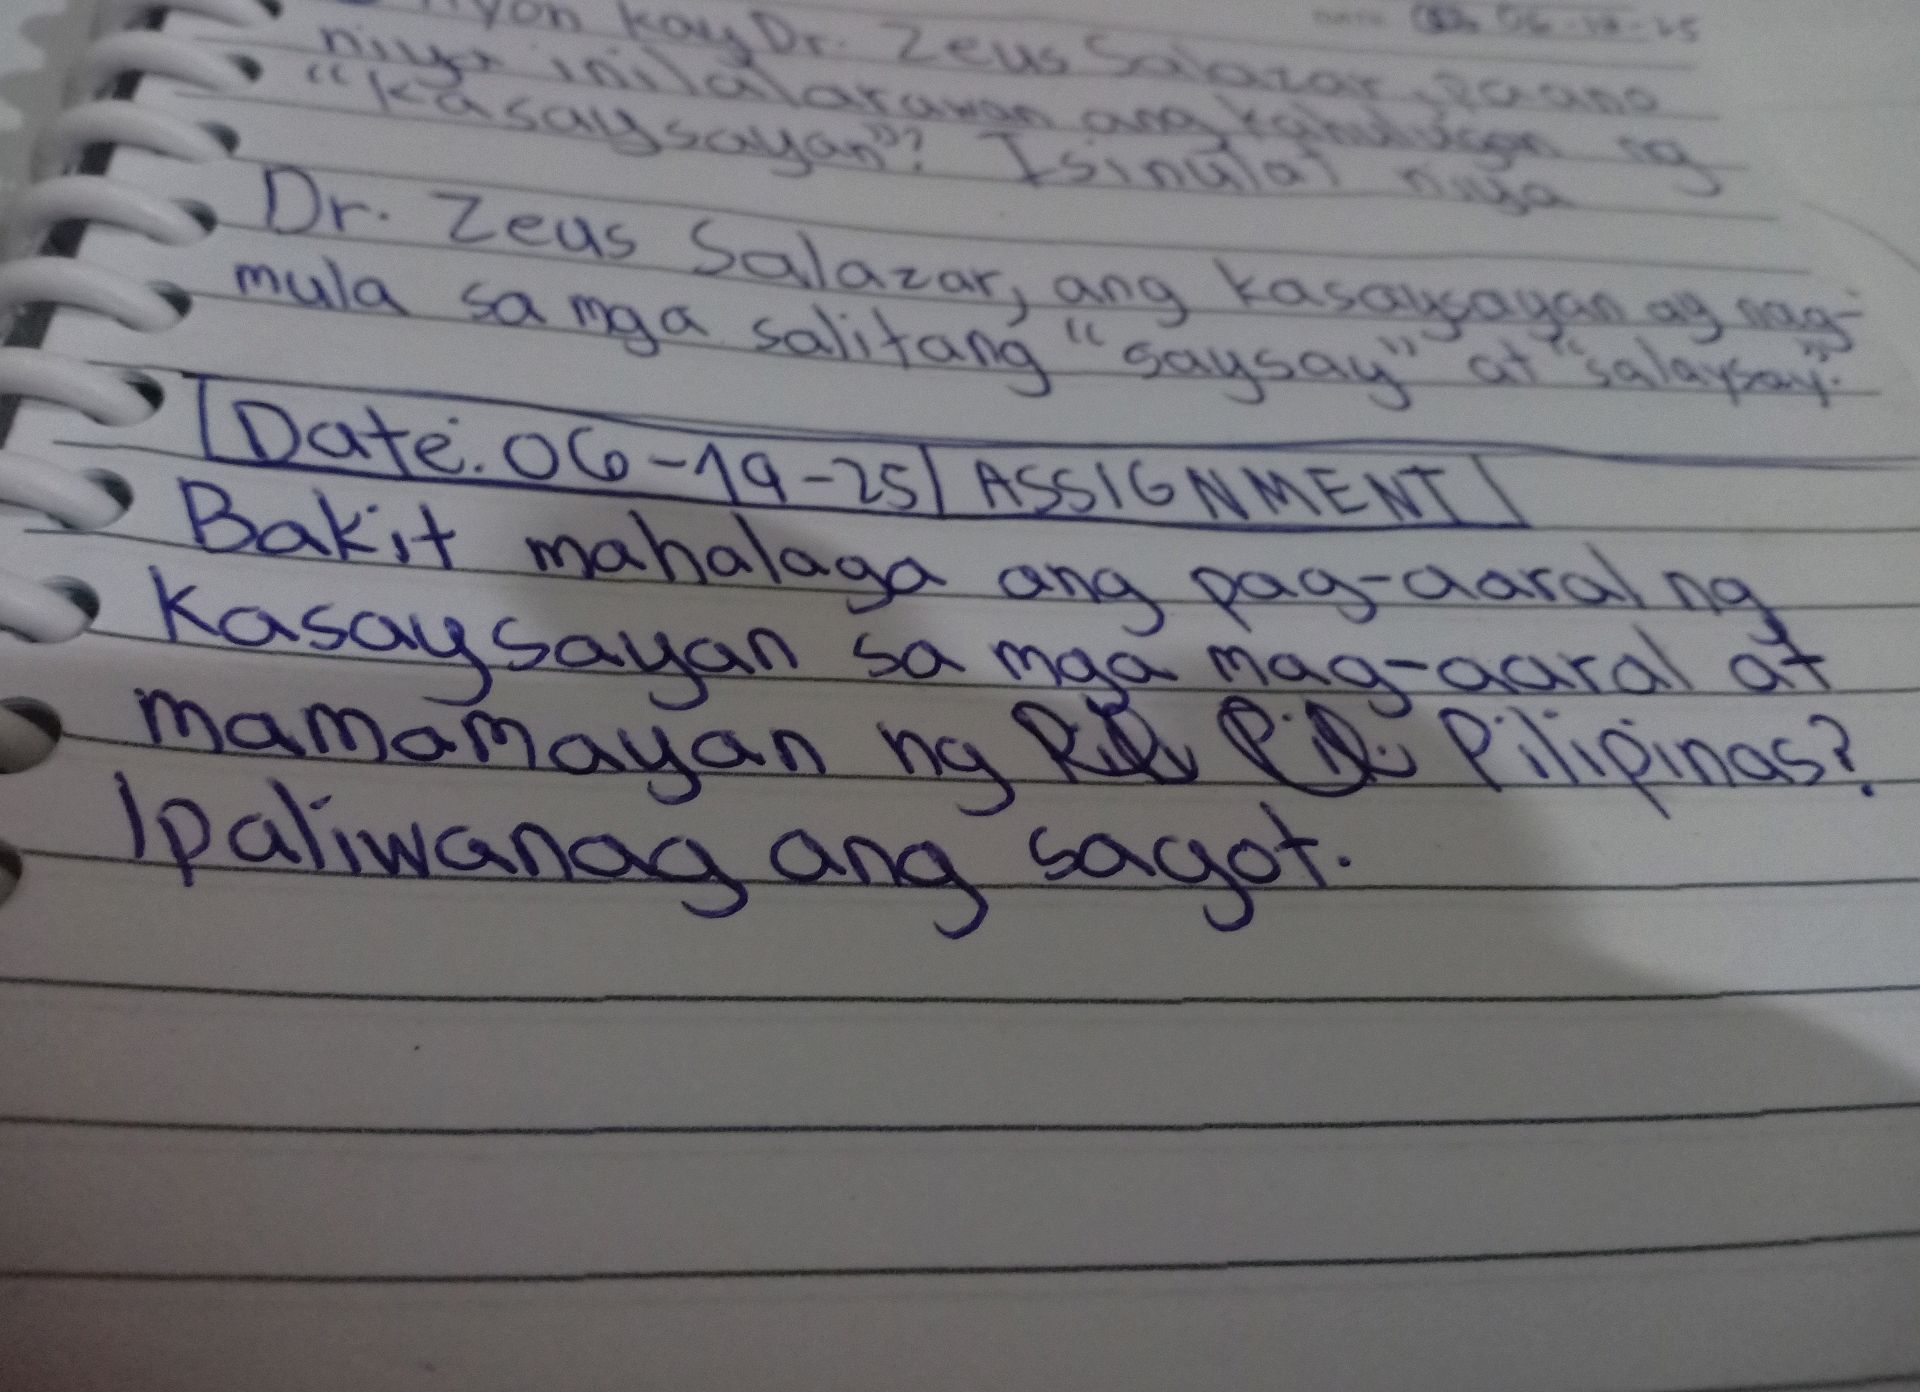 kay Dr. Zeus Salazar, paano
niya inilalarawan ang kahulugan ng
"kasaysayan"? Isinulat niya
Dr. Zeus Salazar, ang kasaysayan ay nag-
mula sa mga salitang "saysay" at "salaysay".
Date. 06-19-25 ASSIGNMENT
Bakit mahalaga ang pag-aaral ng
Kasaysayan sa mga mag-aaral at
mamamayan ng Pilipinas?
Ipaliwanag ang sagot.